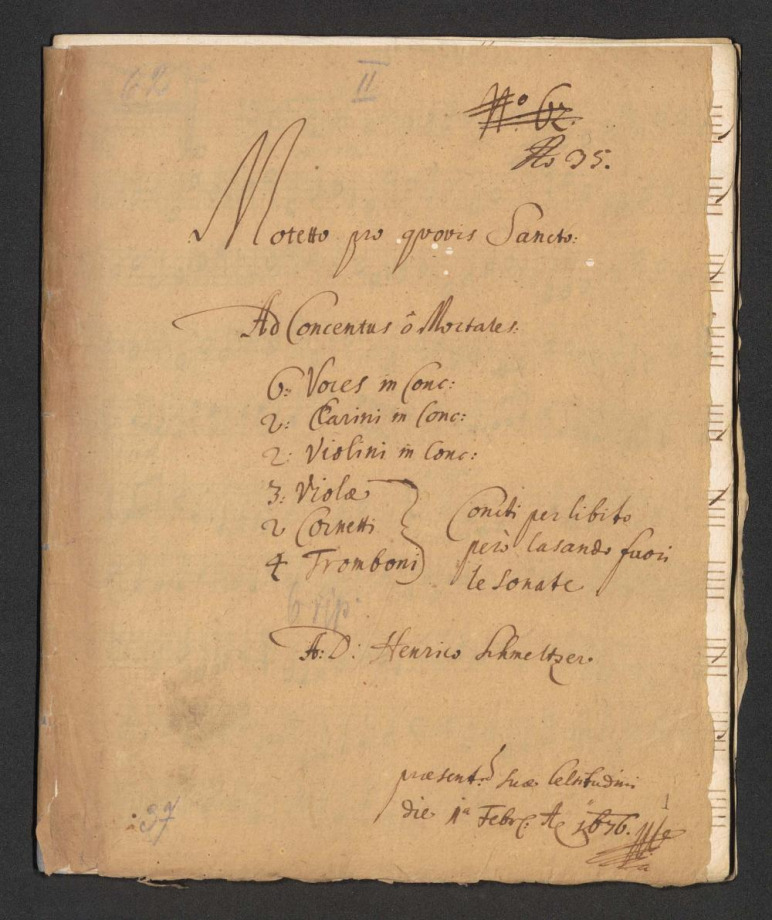 62
II
No 62.
No 35.
Motetto pro quovis Sancto:
Ad Concentus ô Mortales:
6: Voces in Conc:
2: Clarini in Conc:
2: Violini in Conc:
3: Violæ
2 Cornetti
4 Tromboni
Concti per libito
però lasando fuori
le Sonate
6 rip:
A: D: Henrico Schmeltzer.
præsent: suæ Celsitudini
die 1a Febr: Ao 1676.
37